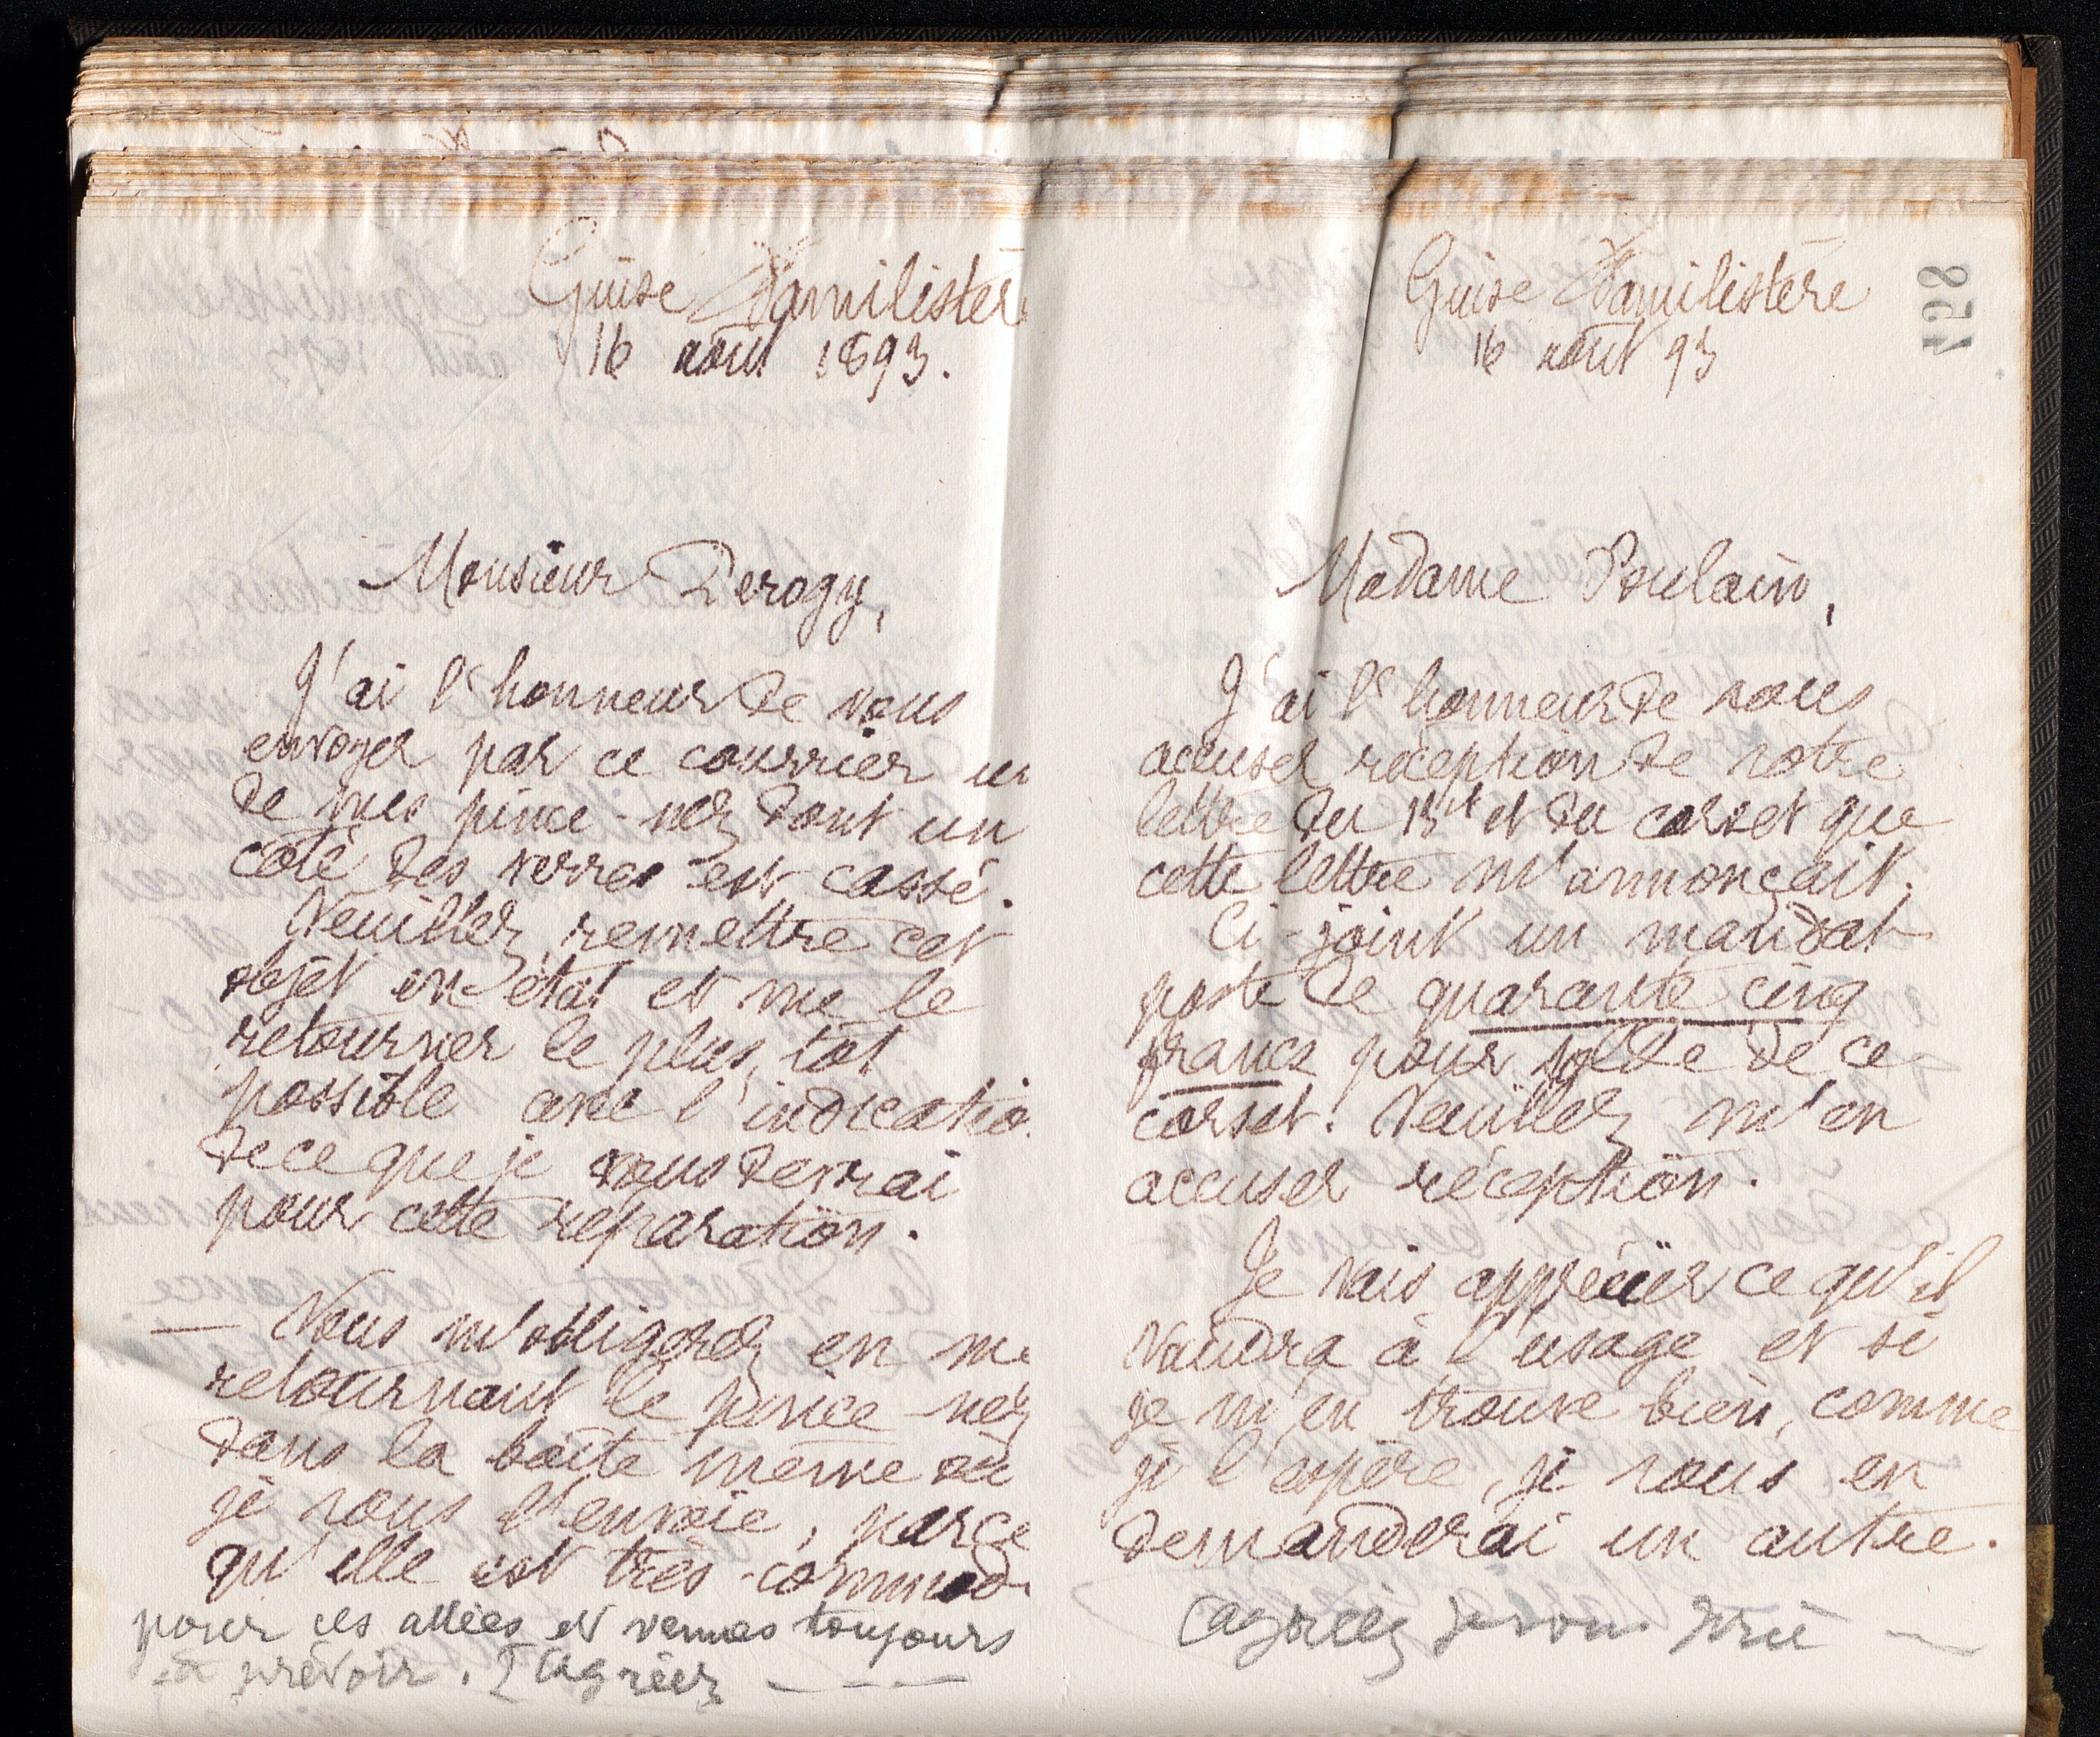 Guise Familistère
16 août 1893.
Monsieur Derogy,
J'ai l'honneur de vous
envoyer par ce courrier un
de mes pince-nez dont un
côté des verres est cassé.
Veuillez remettre cet
objet en état et me le
retourner le plus tôt
possible avec l'indicatio
de ce que je vous devrai
pour cette réparation.
— Vous m'obligerez en me
retournant le pince-nez
dans la boîte même où
je vous l'envoie, parce
qu'elle est très commod
pour les allées et venues toujours
à prévoir. Agréez _ _ _
Guise Familistère
16 août 93
428
Madame Poulain,
J'ai l'honneur de vous
accuser réception de votre
lettre du 15 et du corset que
cette lettre m'annonçait.
Ci-joint un mandat
poste de quarante cinq
francs pour solde de ce
corset. Veuillez m'en
accuser réception.
Je vais apprécier ce qu'il
vaudra à l'usage et si
je m'en trouve bien, comme
je l'espère, je vous en
demanderai un autre.
(agréez je vous prie —